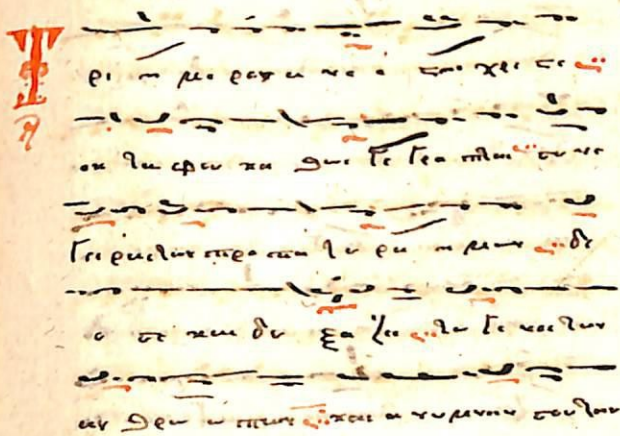 Τρι η με ρος α νε ε στης χρι στε
εκ τα φου κα θως γε γρα πται συ νε
γει ρας τον προ πα το ρα η μων δι
ο σε και δο ξα ζει το γε νος των
αν θρω πων και α νυ μνει σου την